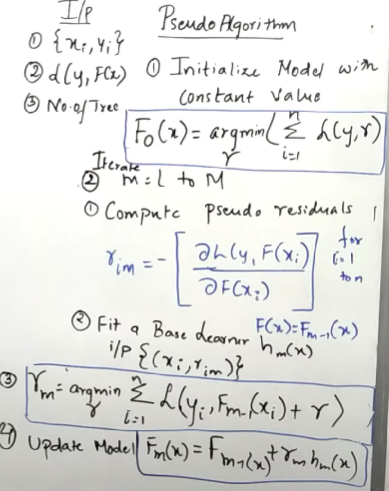 I/P
① {xᵢ, yᵢ}
② L(y, F(x))
③ No. of Tree
Pseudo Algorithm
① Initialize Model with
constant value
F₀(x) = argmin_γ ( Σ_{i=1}^{n} L(y, γ) )
Iterate
② m = 1 to M
① Compute pseudo residuals
r_im = - [ ∂L(y, F(xᵢ)) / ∂F(xᵢ) ] for i=1 to n
F(x) = F_{m-1}(x)
② Fit a Base Learner h_m(x)
i/p {(xᵢ, r_im)}
③ γ_m = argmin_γ Σ_{i=1}^{n} L(yᵢ, F_{m-1}(xᵢ) + γ)
④ Update Model F_m(x) = F_{m-1}(x) + γ_m h_m(x)